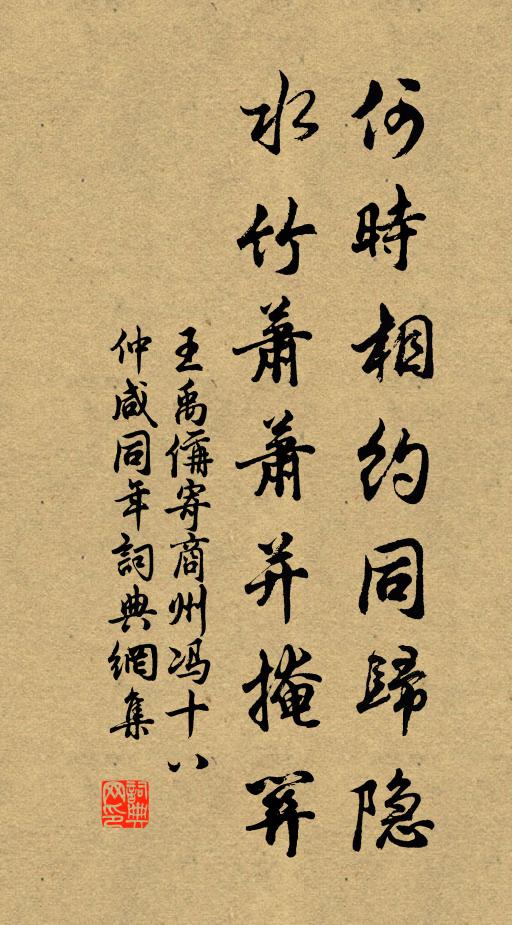 何時相約同歸隐
水竹蕭蕭并掩關
王禹偁寄商州冯十八
仲咸同年詞典網集
詞典
网印